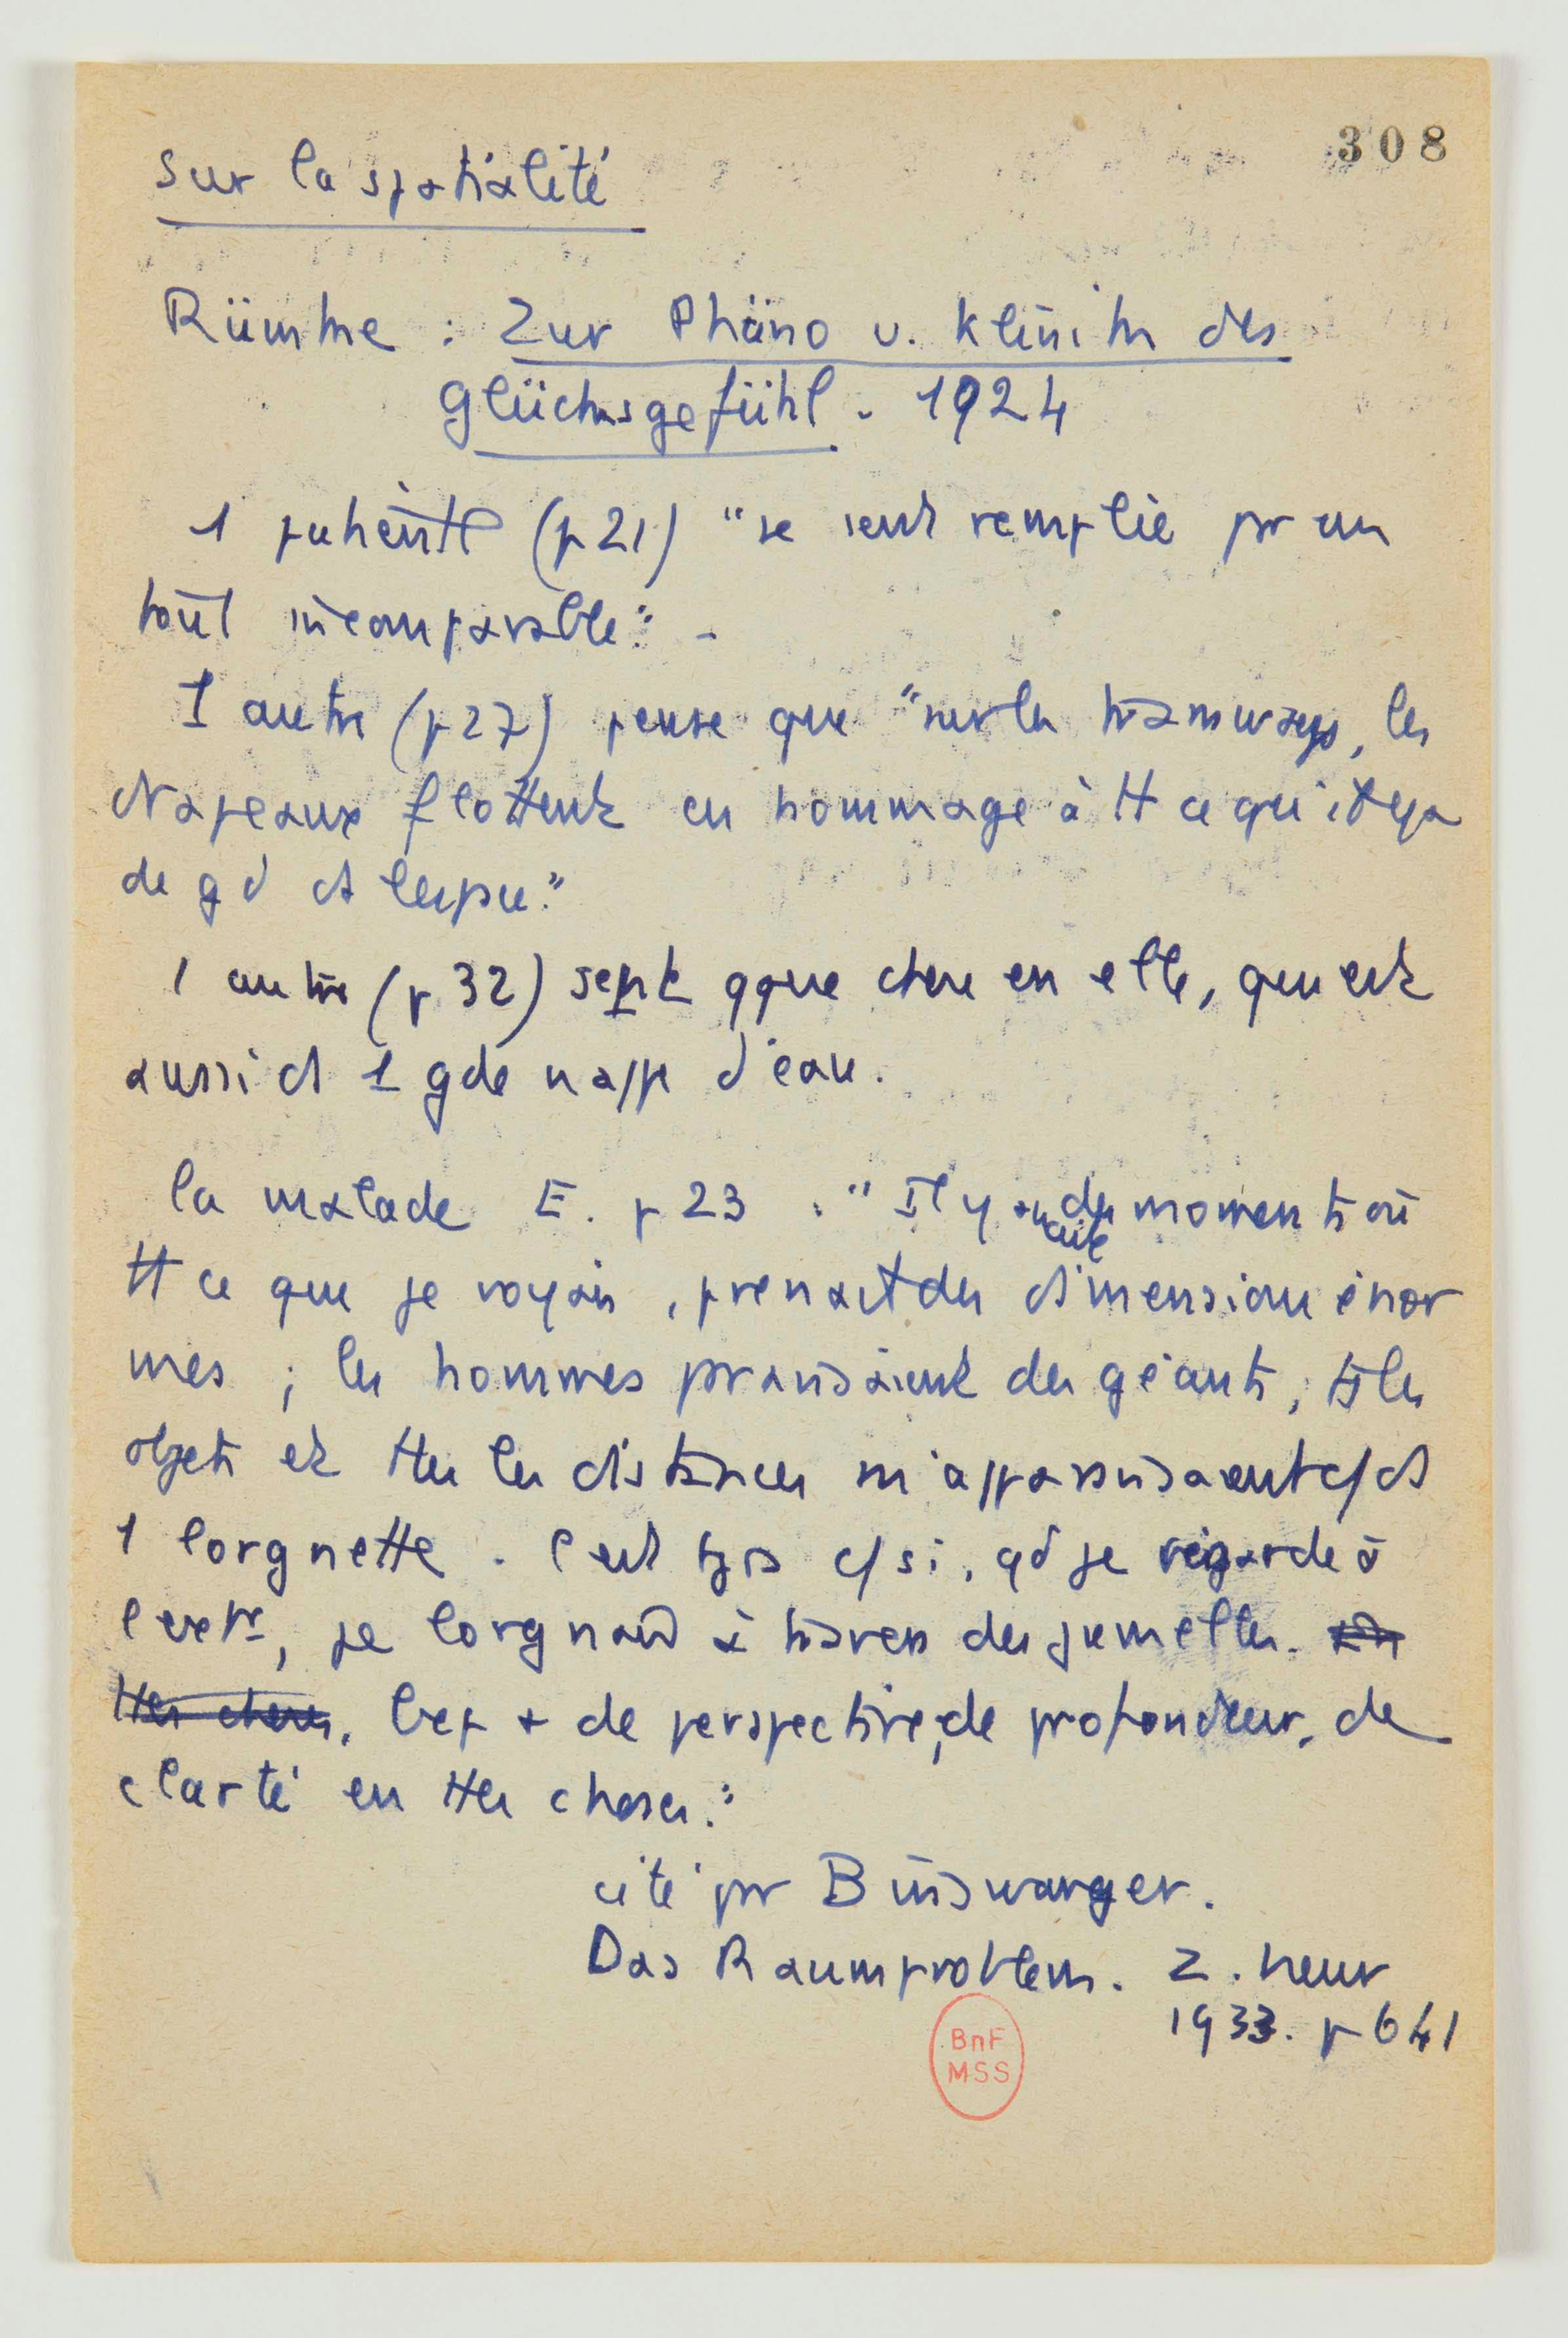 308
Sur la spatialité
Rümke : Zur Phäno u. Klinik des
Glücksgefühl. 1924
1 patiente (p 21) "se sent remplie pr un
tout incomparable". -
1 autre (p 27) pense que "sur les tramways, les
drapeaux flottent en hommage à tt ce qu'il y a
de gd ds l'espace."
1 autre (p 32) sent qque chose en elle, qui est
aussi ds 1 gde nappe d'eau.
La malade E. p 23 : "Il y avait des moments où
tt ce que je voyais, prenait des dimensions énor
mes ; les hommes paraissaient des géants, ts les
objets et ttes les distances m'apparaissaient c/ ds
1 lorgnette. C'est tjrs c/ si, qd je regarde à
l'extr, je lorgnais à travers des jumelles.
Bcp + de perspective, de profondeur, de
clarté en ttes choses."
cité pr Binswanger.
Das Raumproblem. Z. Neur
1933. p 641
BnF
MSS